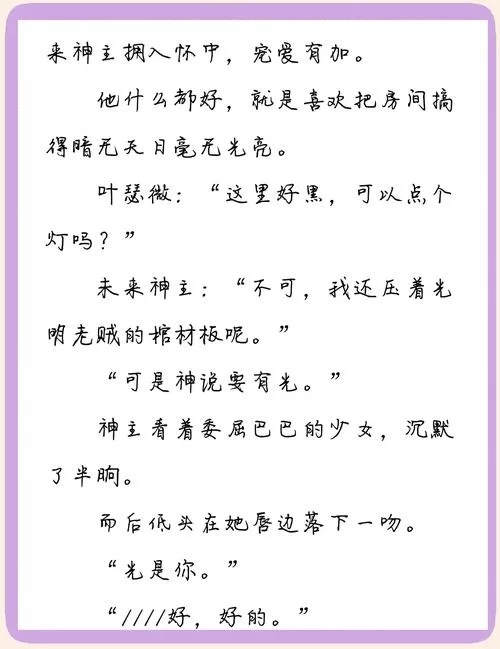 来神主拥入怀中，宠爱有加。
他什么都好，就是喜欢把房间搞
得暗无天日毫无光亮。
叶瑟微：“这里好黑，可以点个
灯吗？”
未来神主：“不可，我还压着光
明老贼的棺材板呢。”
“可是神说要有光。”
神主看着委屈巴巴的少女，沉默
了半晌。
而后低头在她唇边落下一吻。
“光是你。”
“////好，好的。”